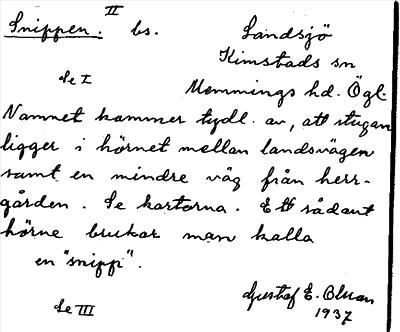 Snippen. II bs. Landsjö
Kimstads sn
Se I Memmings hd. Ögl.
Namnet kommer tydl. av, att stugan
ligger i hörnet mellan landsvägen
samt en mindre väg från herr-
gården. Se kartorna. Ett sådant
hörne brukar man kalla
en "snipp".
Se III Gustaf E.
1937